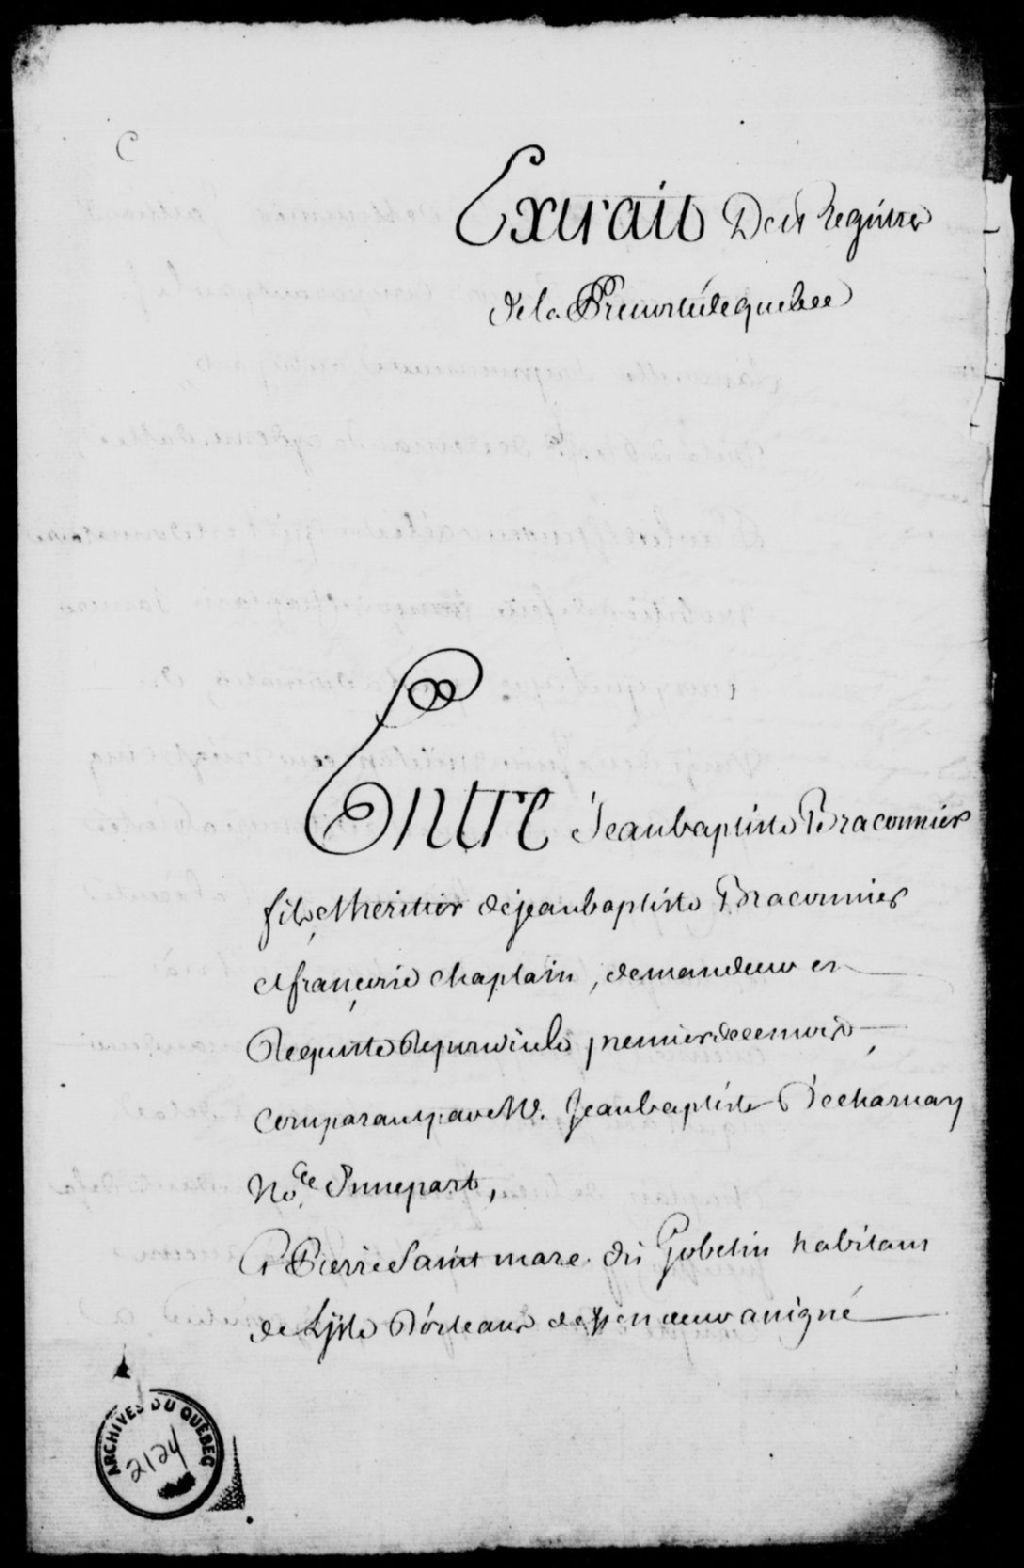 C
Extrait Des Registres
de la Prevosté de quebec
Entre Jean baptiste Braconnier
fils et heritier de jean baptiste Braconnier
et françoise chaplain, demandeur en
Requeste Reponduë le premier de ce mois,
comparant par Me. Jean baptiste Decharnay
No.re d'une part,
Et Pierre Saint marc dit Gobelin habitant
de L'jsle D'orleans deffendeur assigné
ARCHIVES DU QUÉBEC
2124